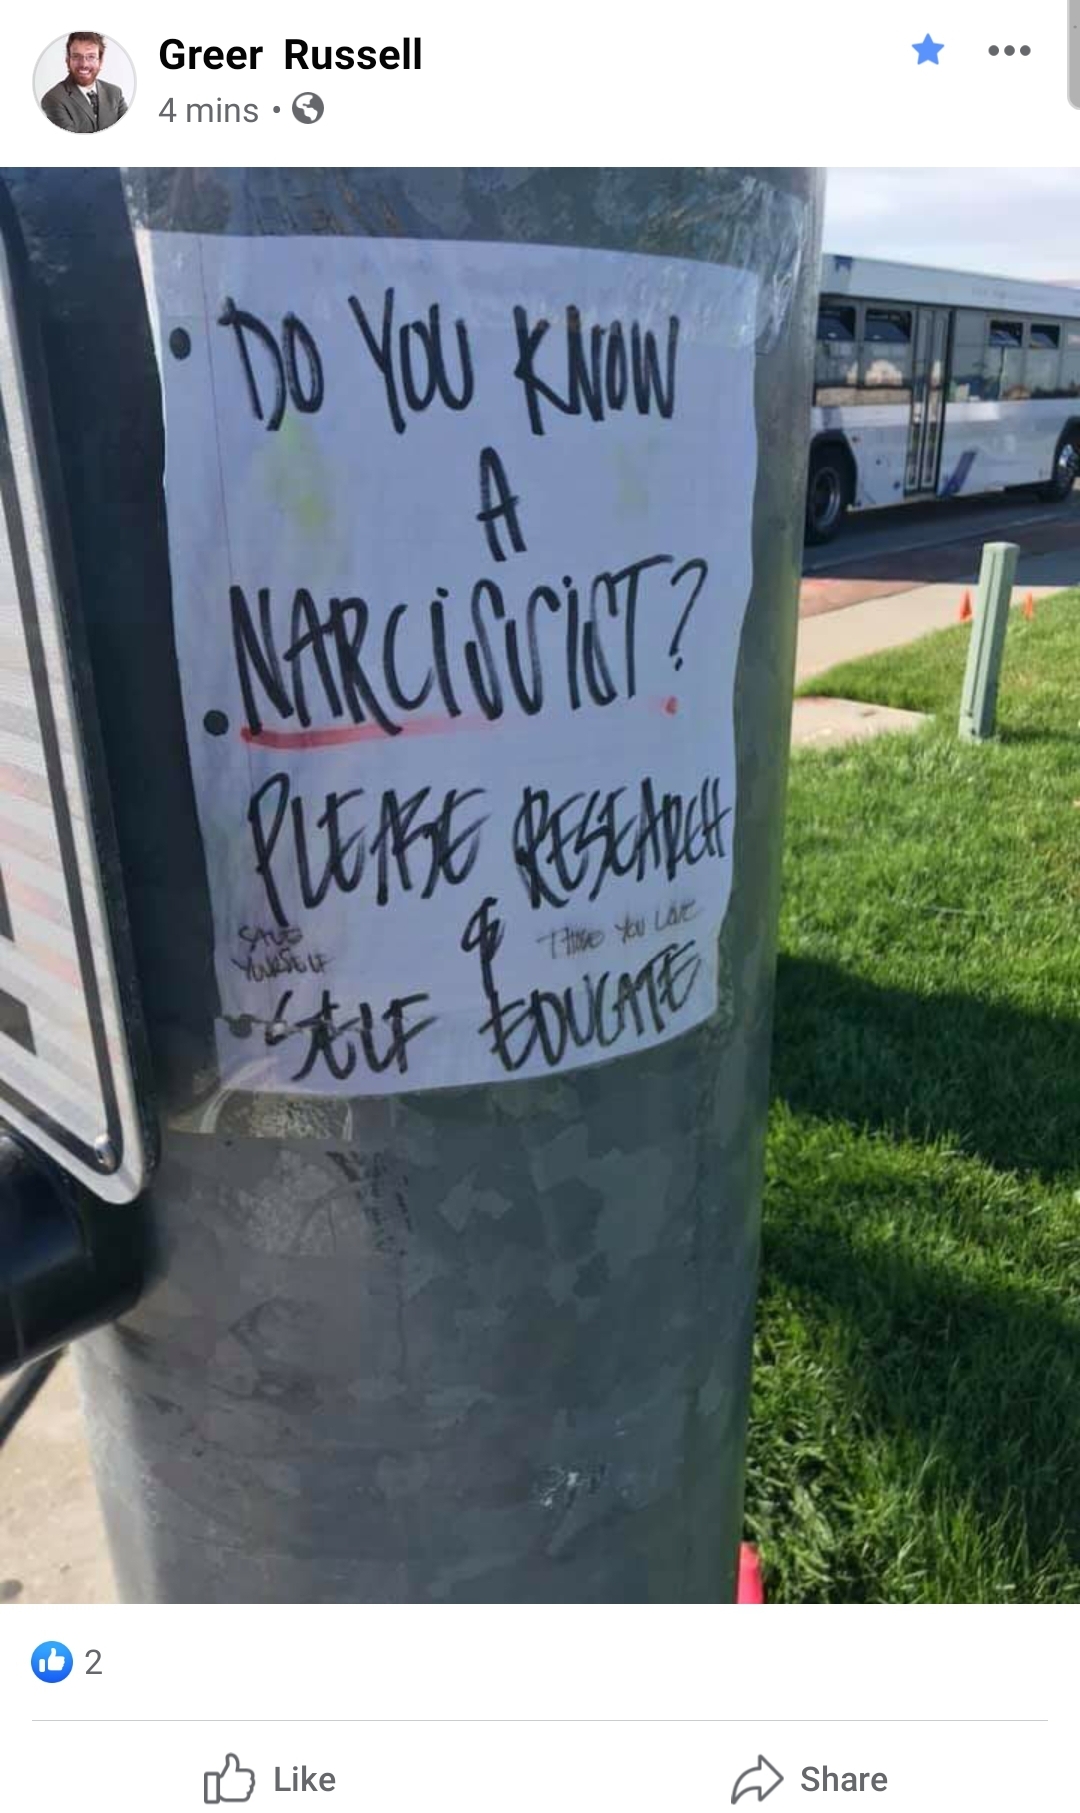 Greer Russell
4 mins
DO YOU KNOW
A
NARCISSIST?
PLEASE RESEARCH
&
SAVE
YOURSELF
THOSE YOU LOVE
SELF EDUCATE
2
Like
Share